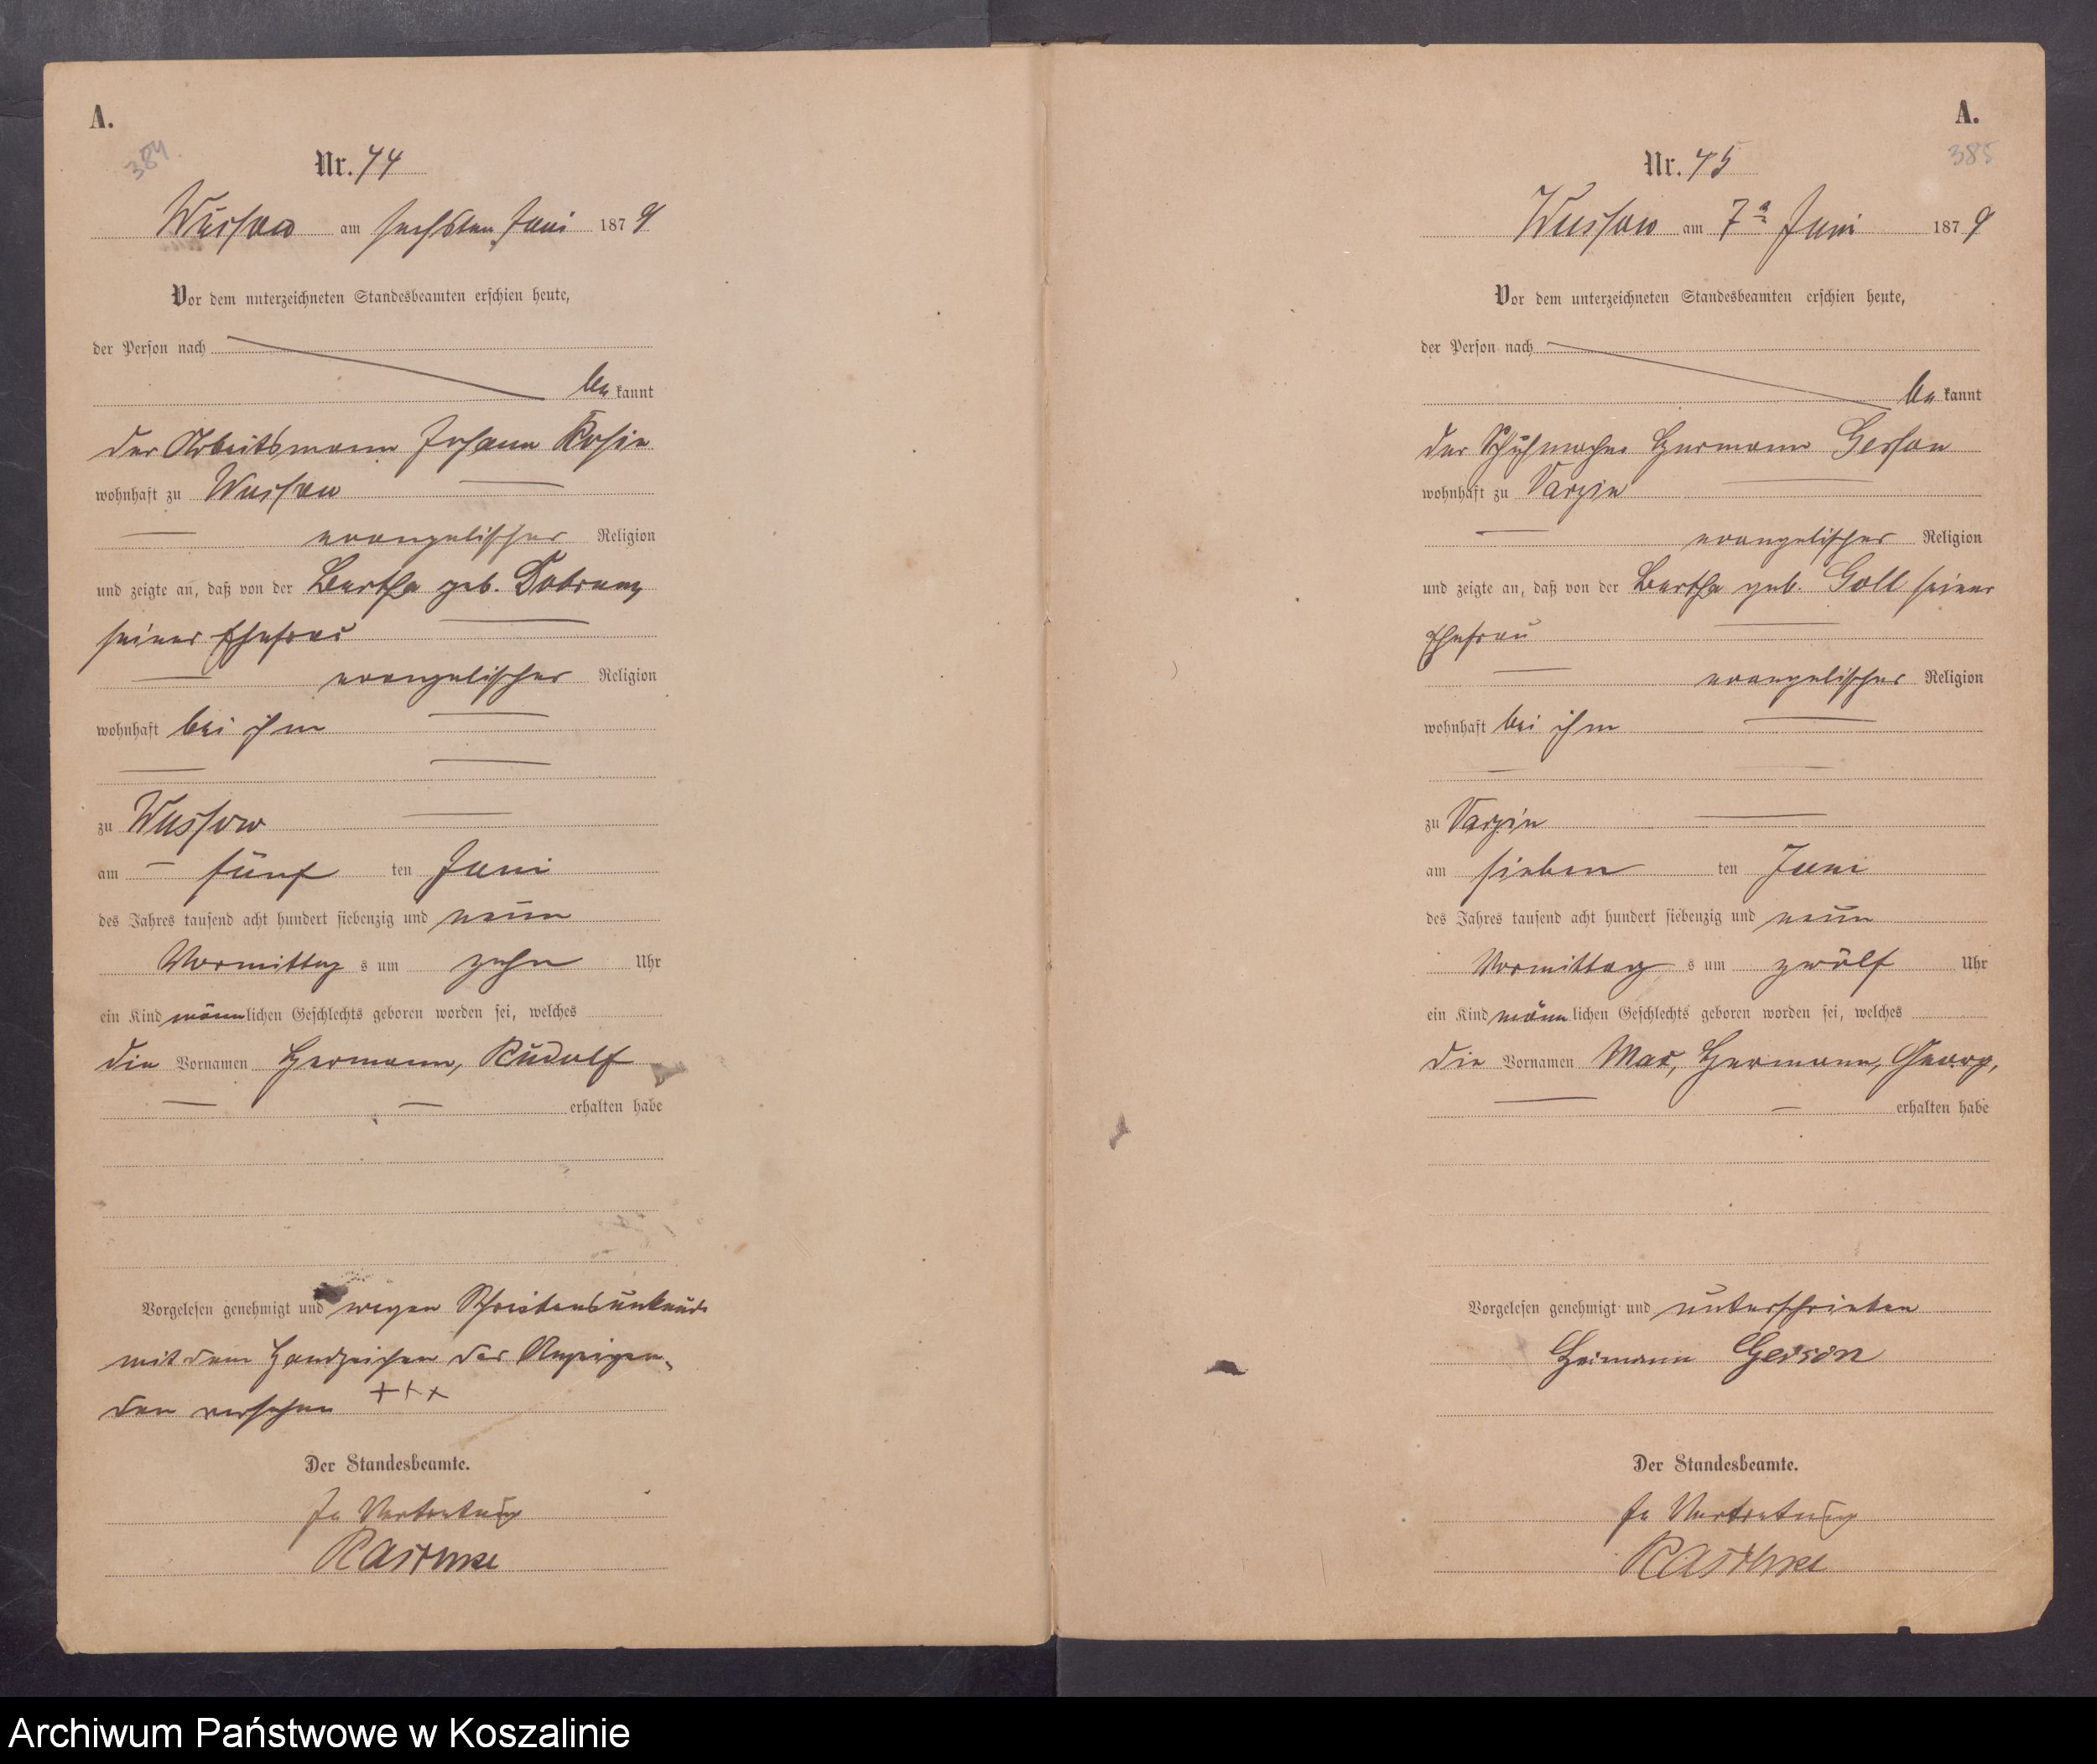 A.
384
Nr. 74
Wussow am sechsten Juni 1879
Vor dem unterzeichneten Standesbeamten erschien heute,
der Person nach
be kannt
der Arbeitsmann Johann Rosin
wohnhaft zu Wussow
evangelischer Religion
und zeigte an, daß von der Bertha geb. Dobrunz
seiner Ehefrau
evangelischer Religion
wohnhaft bei ihm
zu Wussow
am fünf ten Juni
des Jahres tausend acht hundert siebenzig und neun
Vormittag s um zehn Uhr
ein Kind männlichen Geschlechts geboren worden sei, welches
die Vornamen Hermann, Rudolf
erhalten habe
Vorgelesen genehmigt und wegen Schreibensunkunde
mit dem Handzeichen des Anzeigen-
den versehen +++
Der Standesbeamte.
In Vertretung
A.
385
Nr. 75
Wussow am 7ⁿ Juni 1879
Vor dem unterzeichneten Standesbeamten erschien heute,
der Person nach
be kannt
der Schuhmacher Hermann Gerson
wohnhaft zu Varzin
evangelischer Religion
und zeigte an, daß von der Bertha geb. Goll seiner
Ehefrau
evangelischer Religion
wohnhaft bei ihm
zu Varzin
am sieben ten Juni
des Jahres tausend acht hundert siebenzig und neun
Vormittag s um zwölf Uhr
ein Kind männlichen Geschlechts geboren worden sei, welches
die Vornamen Max, Hermann, Georg,
erhalten habe
Vorgelesen genehmigt und unterschrieben
Hermann Gerson
Der Standesbeamte.
In Vertretung
Archiwum Państwowe w Koszalinie